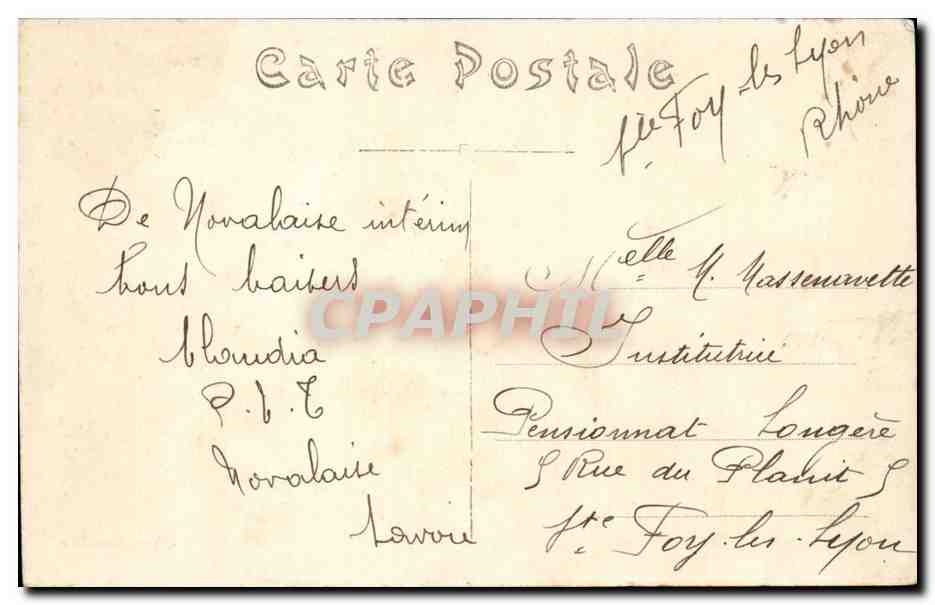 Carte Postale
Ste Foy-les Lyon
Rhône
De Novalaise intérim
bons baisers
Claudia
P.T.T
Novalaise
Savoie
CPAPHIL
Melle M. Massenavette
Institutrice
Pensionnat Lougère
5 Rue du Planit 5
Ste Foy-les-Lyon